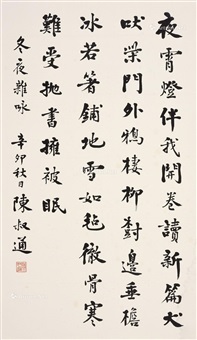 夜宵燈伴我開卷讀新篇犬
吠柴門外鴉棲柳對邊垂檐
冰若箸鋪地雪如氈徹骨寒
難受拋書擁被眠
冬夜雜咏 辛卯秋日 陳叔通